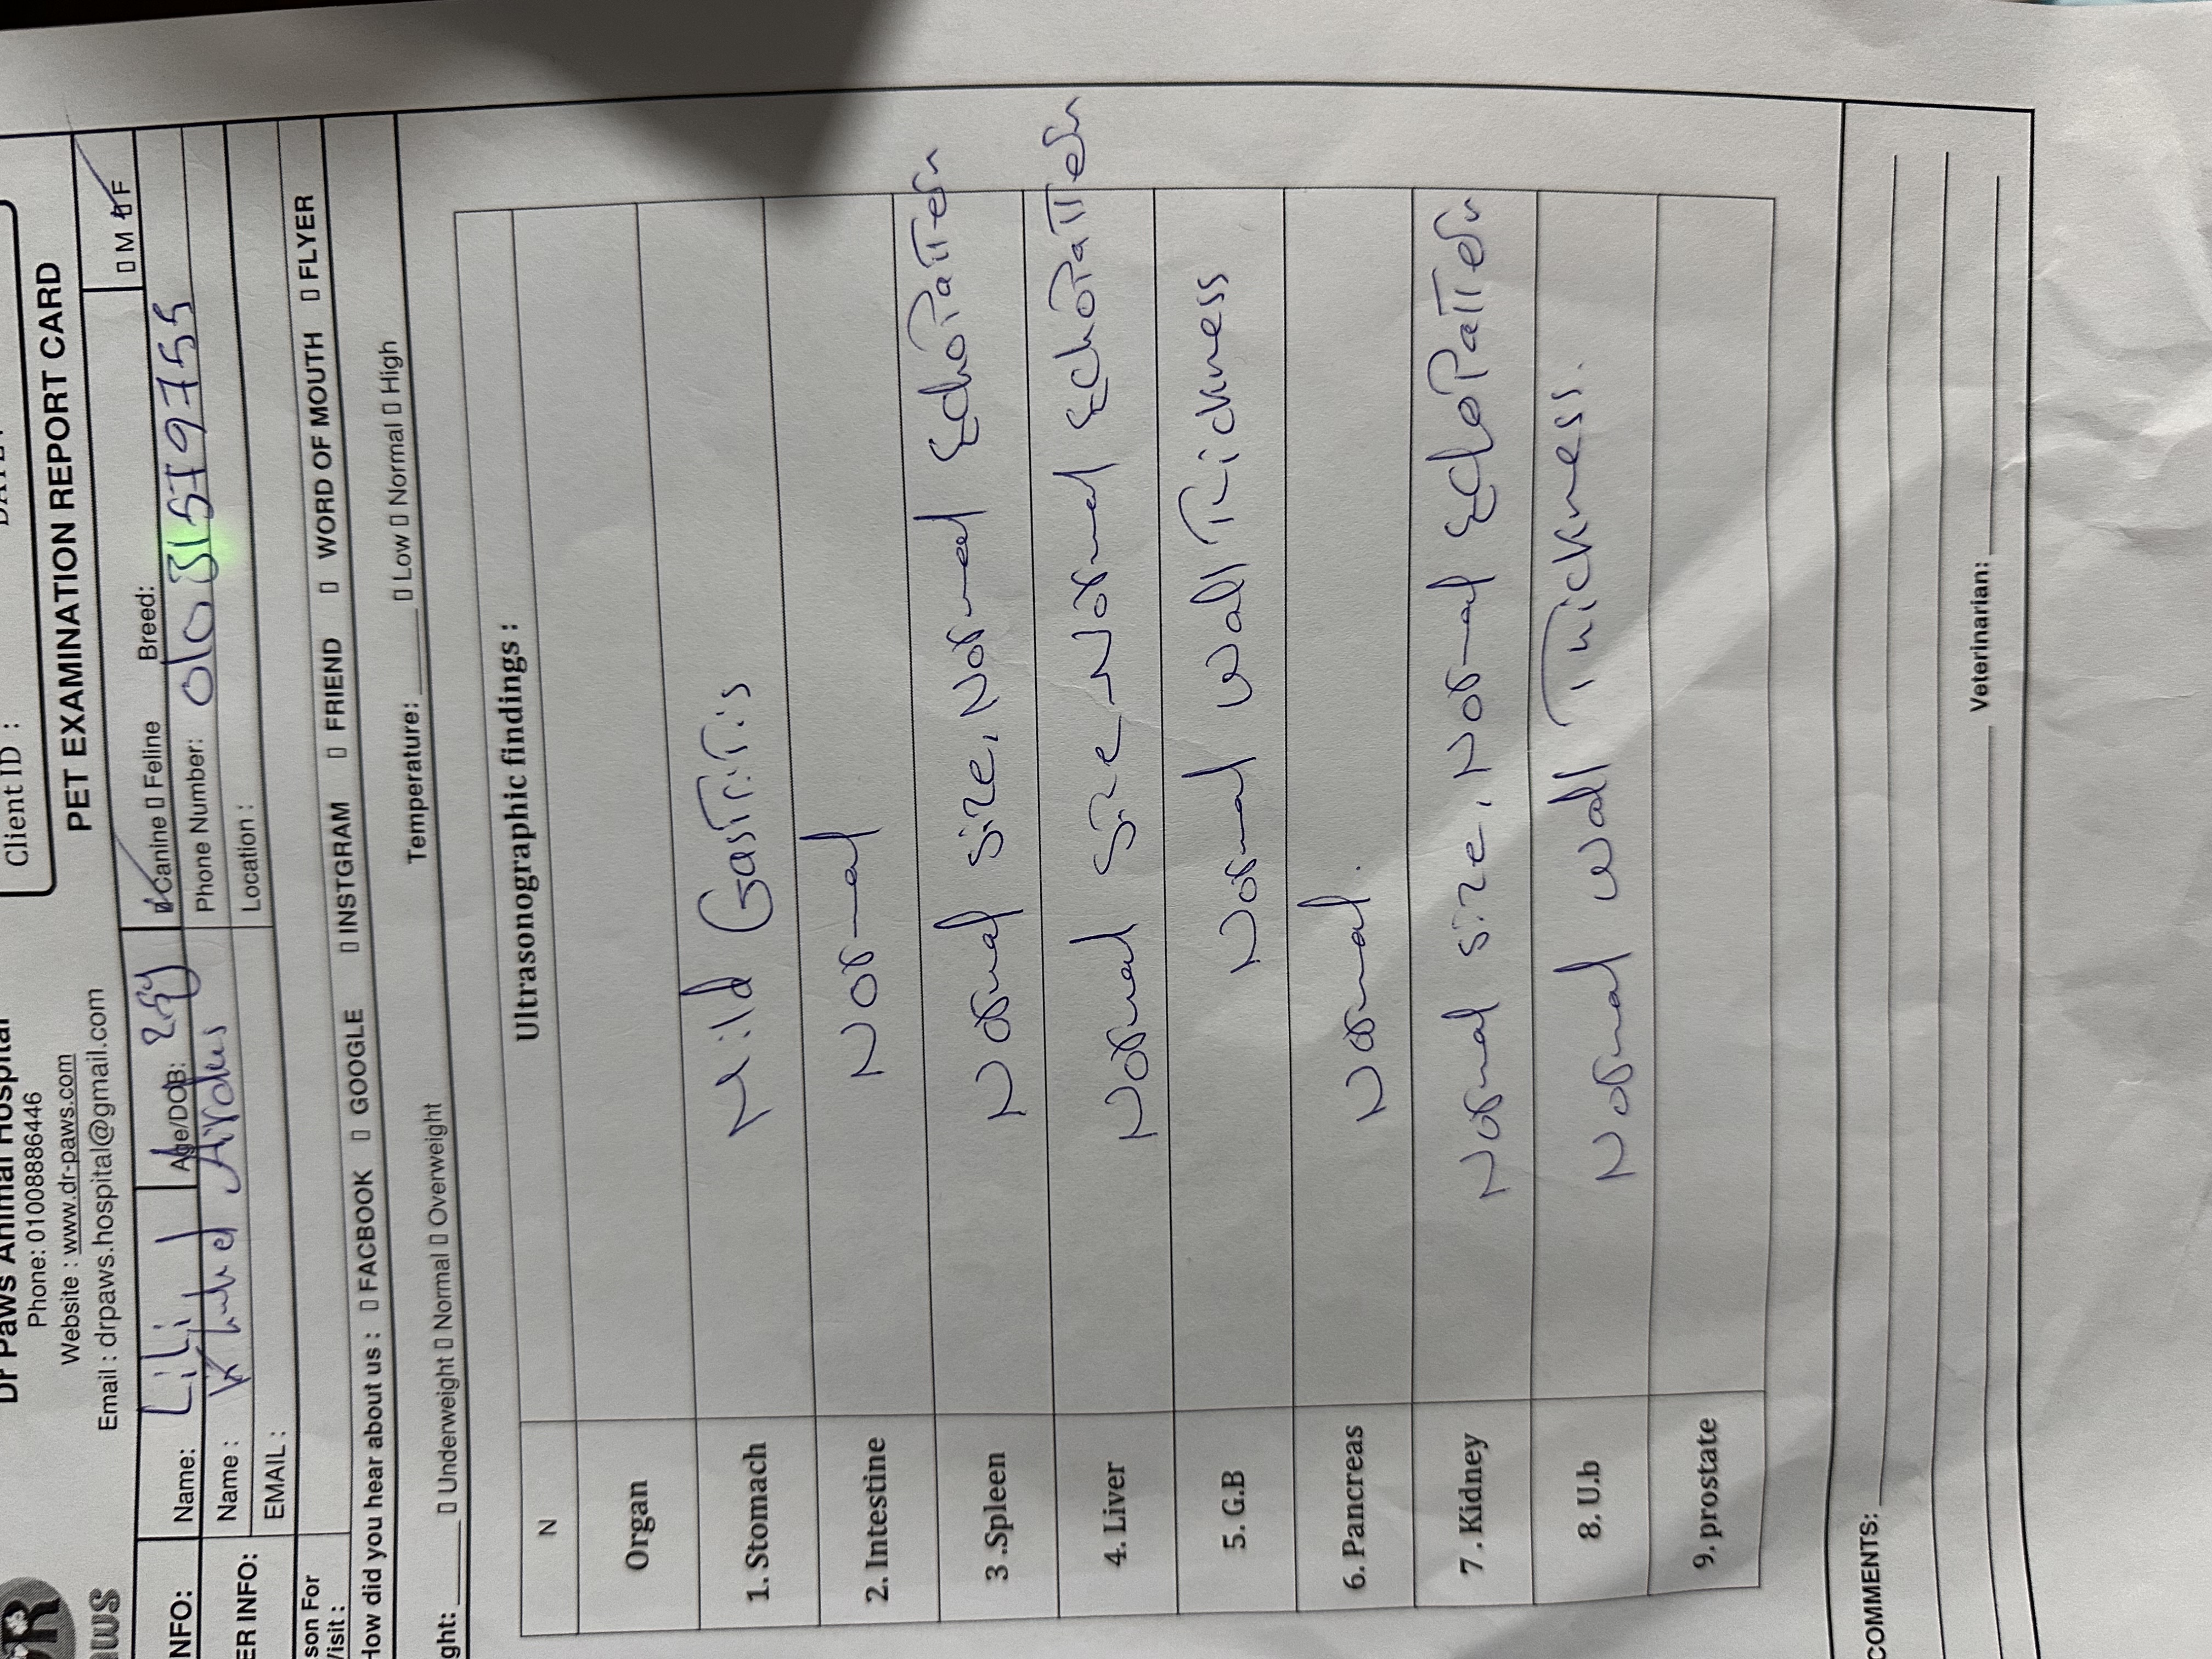 Dr Paws Animal Hospital
Phone: 01008886446
Website : www.dr-paws.com
Email : drpaws.hospital@gmail.com
Client ID :
PET EXAMINATION REPORT CARD
NFO: Name: Lili Age/DOB: 2.5y Canine Feline Breed: M F
ER INFO: Name : Phone Number:
EMAIL : Location :
son For
Visit :
How did you hear about us : FACBOOK GOOGLE INSTGRAM FRIEND WORD OF MOUTH FLYER
ght: Underweight Normal Overweight Temperature: Low Normal High
N Ultrasonographic findings :
Organ
1. Stomach Mild Gastritis
2. Intestine Normal
3 .Spleen Normal size, Normal EchoPattern
4. Liver Normal size - Normal EchoPattern
5. G.B Normal wall Thickness
6. Pancreas Normal.
7 . Kidney Normal size, Normal EchoPattern
8. U.b Normal wall Thickness.
9. prostate
COMMENTS:
Veterinarian: